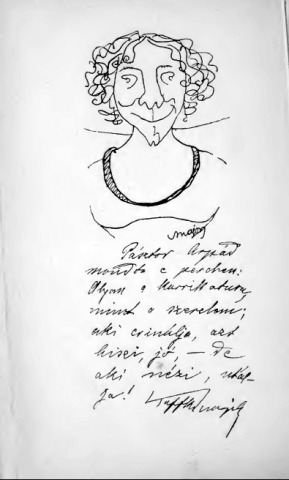 major
Pásztor Árpád
mondta e percben:
Olyan a karrikatura,
mint a szerelem;
aki csinálja, azt
hiszi, jó, — de
aki nézi, utál-
ja!